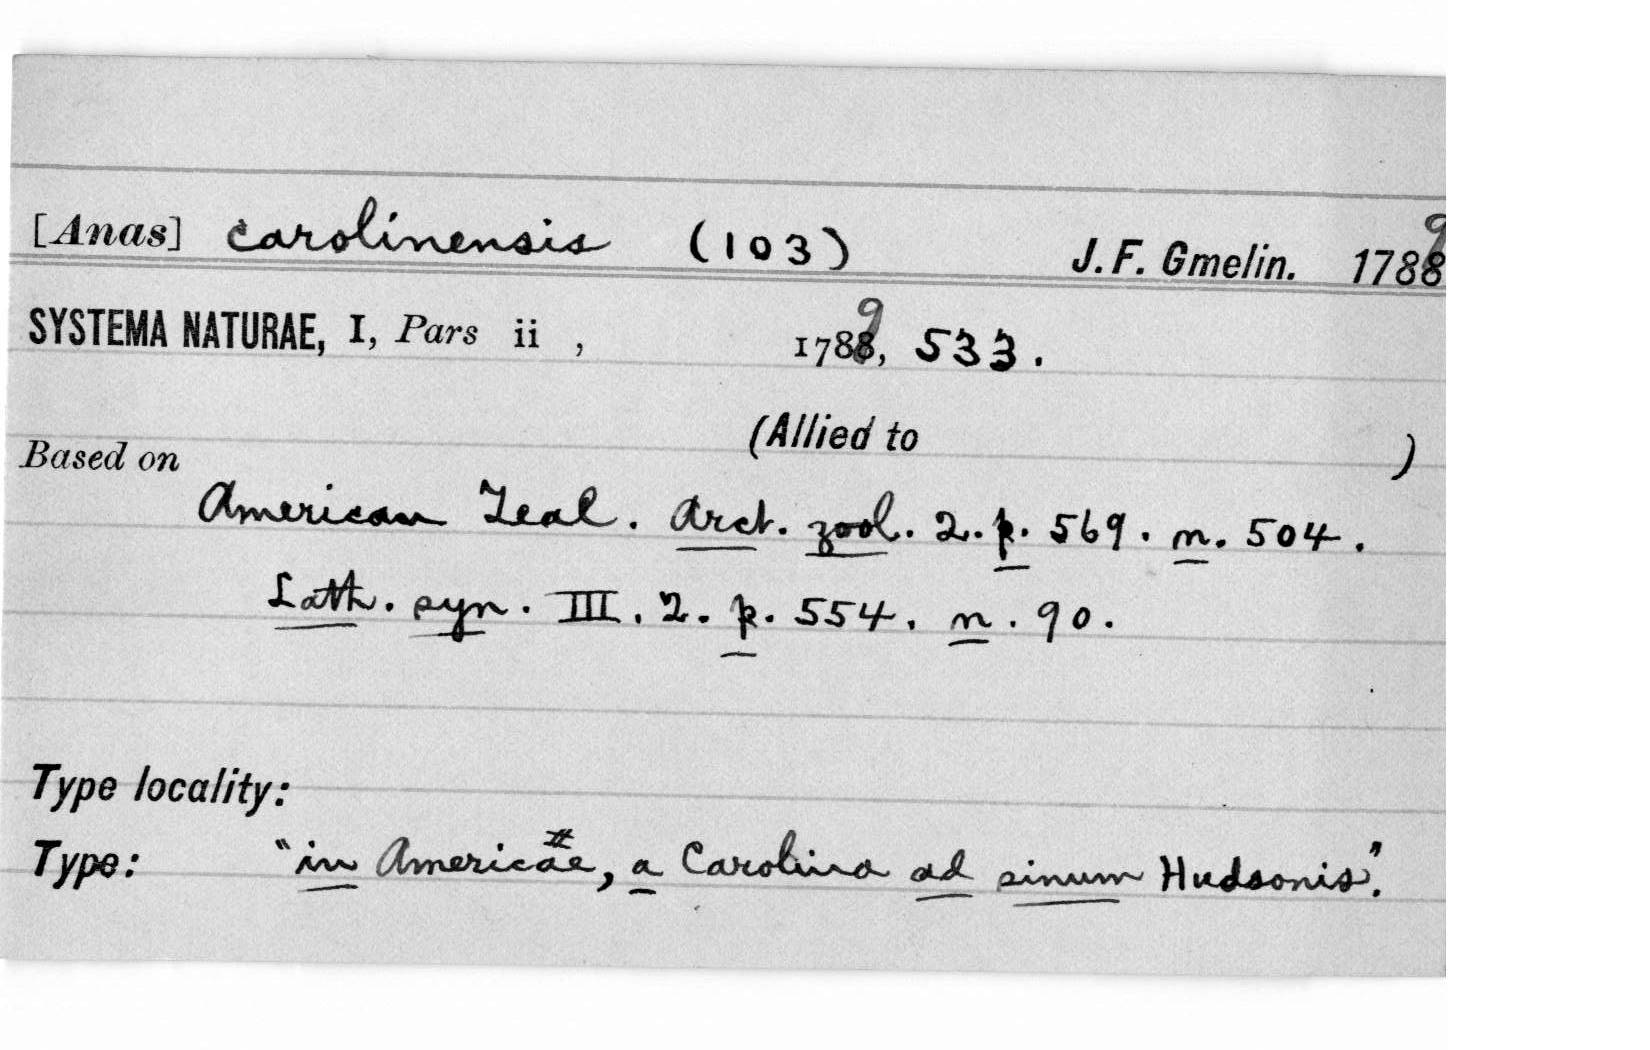 [Anas] carolinensis (103) J. F. Gmelin. 1789
SYSTEMA NATURAE, I, Pars ii , 1789, 533.
(Allied to )
Based on
American Teal. Arct. zool. 2. p. 569. n. 504.
Lath. syn. III. 2. p. 554. n. 90.
Type locality:
Type: "in Americae, a Carolina ad sinum Hudsonis".